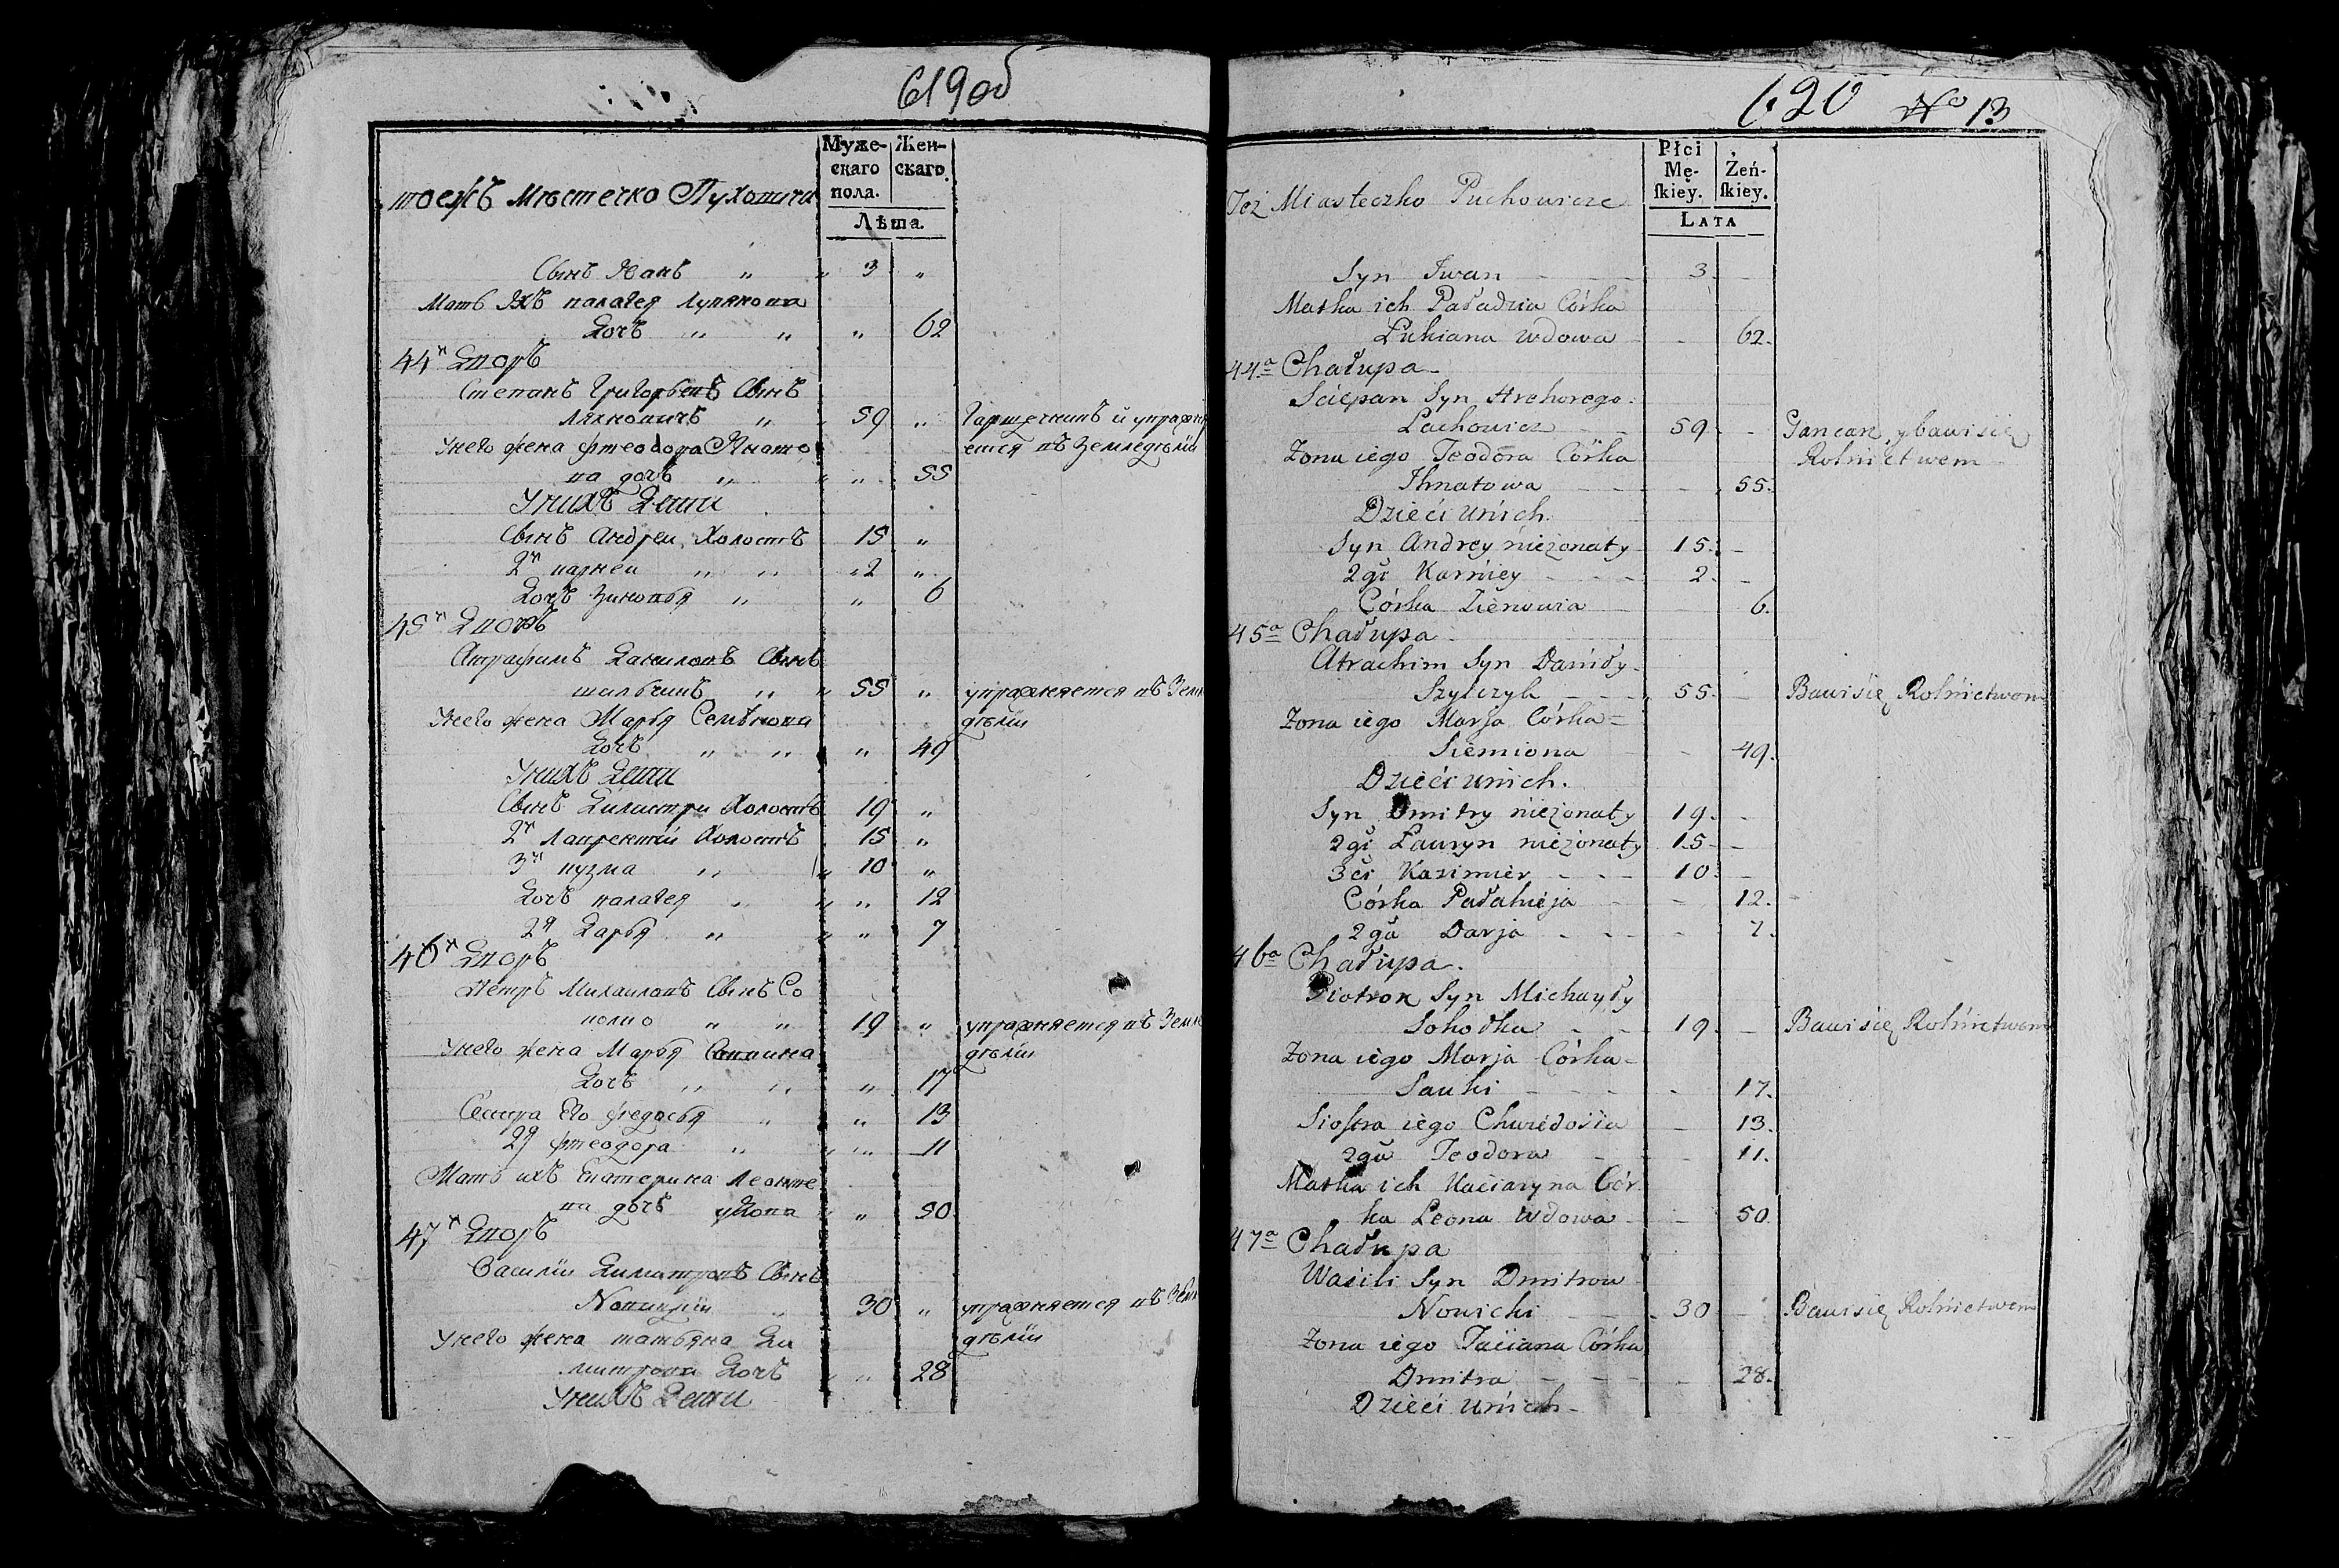 619об
Муже-
скаго
пола.
Жен-
скаго.
Лѣта.
тоежъ Мѣстечко Пуховичи
Сынъ Иванъ " " 3 "
Мать Ихъ палагея Лукянова
Дочь " " " 62
44й Дворъ
Степанъ Григорьевъ Сынъ
Ляховичь " 59 " Гаршечникъ и упражня
ется въ Земледѣлии
Унего жена фтеодора Игнато
ва дочь " " " 55
Унихъ Дети
Сынъ Андреи Холостъ 15 "
2й карнеи " " " 2 "
Дочь Зиновья " " 6
45й Дворъ
Атрафимъ Даниловъ Сынъ
шильчикъ " " 55 " упражняется въ Земл
дѣлии
Унего жена Марья Семѣнова
Дочь " " " 49
Унихъ Дети
Сынъ Димитри Холостъ 19 "
2й Лаврентий Холостъ 15 "
3й кузма " " 10 "
Дочь палагея " " " 12
2я Дарья " " " 7
46й Дворъ
Петръ Михаиловъ Сынъ Со
колко " " 19 " упражняется въ Земле
дѣлии
Унего жена Марья Саввина
Дочь " " " 17
Сестра Его федосья " " 13
2я фтеодора " " " 11
Мать ихъ Екатерина Леонте
ва дочь удова " " 50
47й Дворъ
Василии Димитровъ Сынъ
Новицкии " 30 " упражняется въ Земл
дѣлии
Унего жена татьяна Ди
митрова Дочь " " 28
Унихъ Дети
620 No 13
Płci
Mę-
skiey.
Żeń-
skiey.
LATA
Też Miasteczko Puchowicze
Syn Iwan - - - 3. -
Matka ich Paładzia Córka
Łukiana wdowa - - 62.
44a Chałupa -
Sciepan Syn Hrehorego.
Lachowicz - - 59. - Gancarz, y bawi się
Rolnictwem
Żona iego Teodora Córka
Ihnatowa - - - - 55.
Dzieci unich.
Syn Andrey nieżonaty 15. -
2gi Karniey - - - 2. -
Córka Zienowia 6.
45a Chałupa -
Atrachim Syn Daniły.
Szylczyk - - - 55. - Bawi się Rolnictwem
Żona iego Marja Córka =
Siemiona - 49.
Dzieci unich.
Syn Dmitry nieżonaty 19. -
2gi Ławryn nieżonaty 15. -
3ci Kazimier - - - 10. -
Córka Pałahieja - - 12.
2ga Darja - - - - 7.
46a Chałupa.
Piotrok Syn Michayły
Sokołka - - 19. - Bawi się Rolnictwem
Żona iego Marja Córka -
Sauki - - - - 17.
Siostra iego Chwiedosiia - 13.
2ga Teodora - - - 11.
Matka ich Kaciaryna Cór
ka Leona wdowa - - 50.
47a Chałupa
Wasili Syn Dmitrow
Nowicki - - 30 - Bawi się Rolnictwem
Żona iego Taciana Córka
Dmitra - - - - 28.
Dzieci unich -